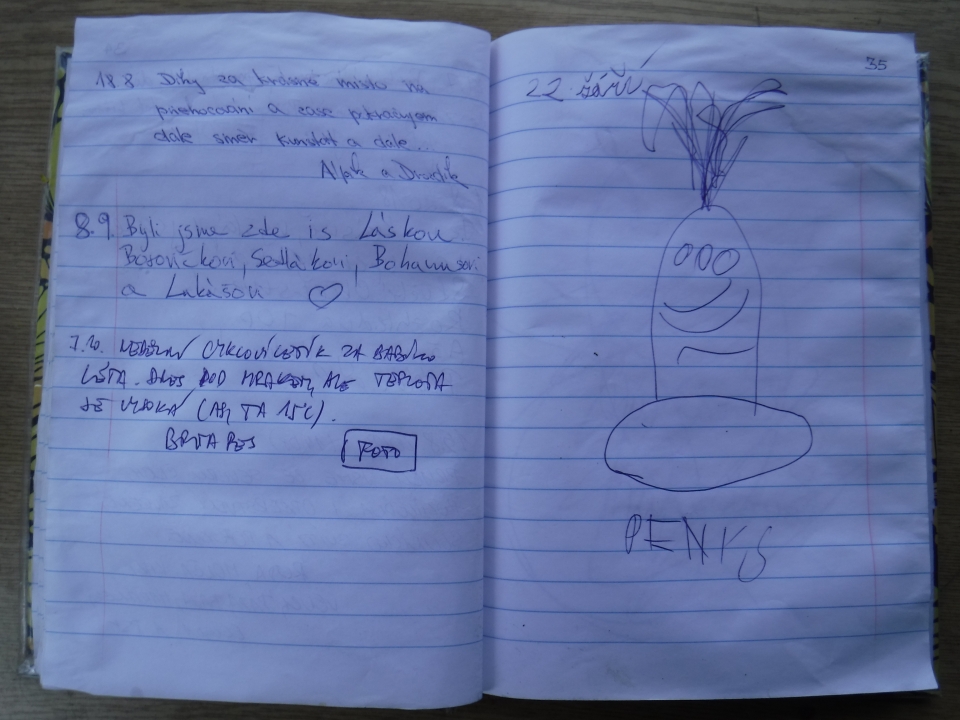 18.8 Díky za krásné místo na
přenocování a zase pokračujem
dále směr Kunštát a dále...
a
8.9. Byli jsme zde i s Láskou
Borovičkovi, Sedlákovi, Bohanusovi
a Lukášovi
7.10. NEDĚLNÍ CYKLOVÝLETÍK ZA BABÍHO
LÉTA. DNES POD MRAKEM, ALE TEPLOTA
JE VYSOKÁ (TA 15°C).
FOTO
35
22 září
PENIS